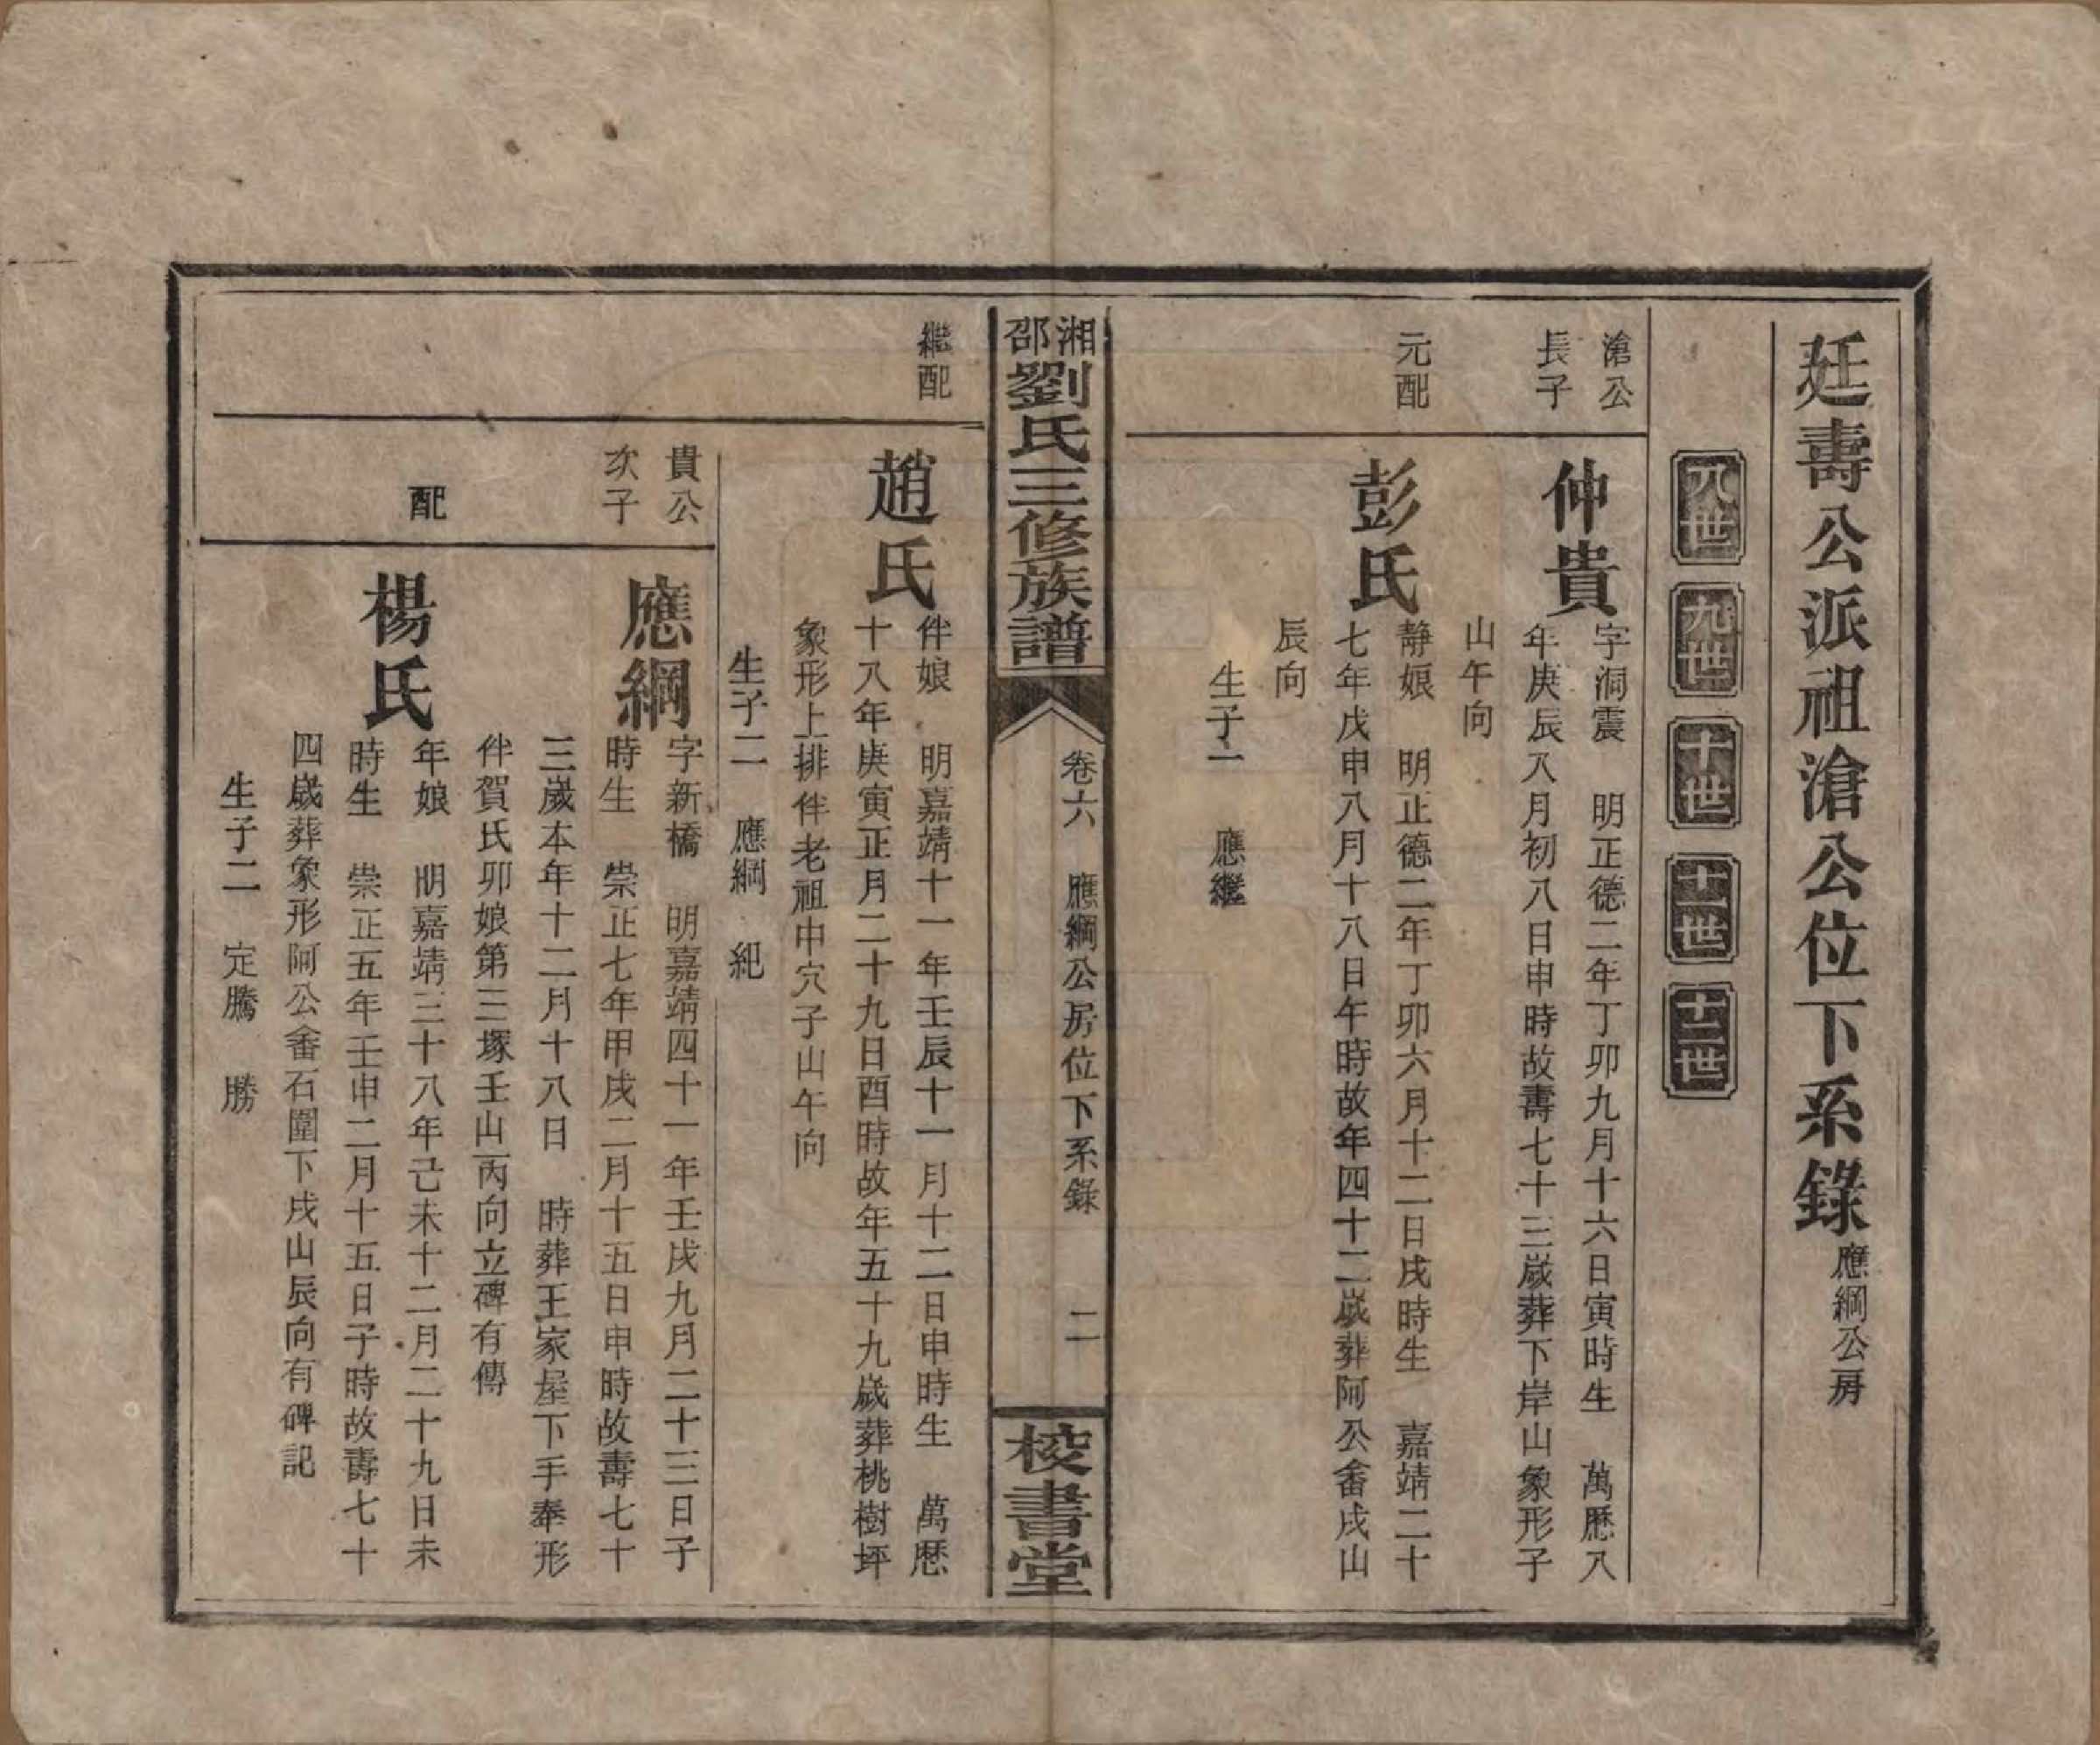 廷壽公派祖滄公位下系錄應綱公房
八世 九世 十世 十一世 十二世
滄公
長子
仲貴
字洞震 明正德二年丁卯九月十六日寅時生 萬歷八
年庚辰八月初八日申時故壽七十三歲葬下岸山象形子
山午向
元配
彭氏
靜娘 明正德二年丁卯六月十二日戌時生 嘉靖二十
七年戊申八月十八日午時故年四十二歲葬阿公畬戌山
辰向
生子一 應繼
湘邵劉氏三修族譜
卷六 應綱公房位下系錄 二
校書堂
繼配
趙氏
伴娘 明嘉靖十一年壬辰十一月十二日申時生 萬歷
十八年庚寅正月二十九日酉時故年五十九歲葬桃樹坪
象形上排伴老祖中穴子山午向
生子二 應綱 紀
貴公
次子
應綱
字新橋 明嘉靖四十一年壬戌九月二十三日子
時生 崇正七年甲戌二月十五日申時故壽七十
三歲本年十二月十八日 時葬王家屋下手奉形
伴賀氏卯娘第三塚壬山丙向立碑有傳
配
楊氏
年娘 明嘉靖三十八年己未十二月二十九日未
時生 崇正五年壬申二月十五日子時故壽七十
四歲葬象形阿公畬石圍下戌山辰向有碑記
生子二 定騰 勝